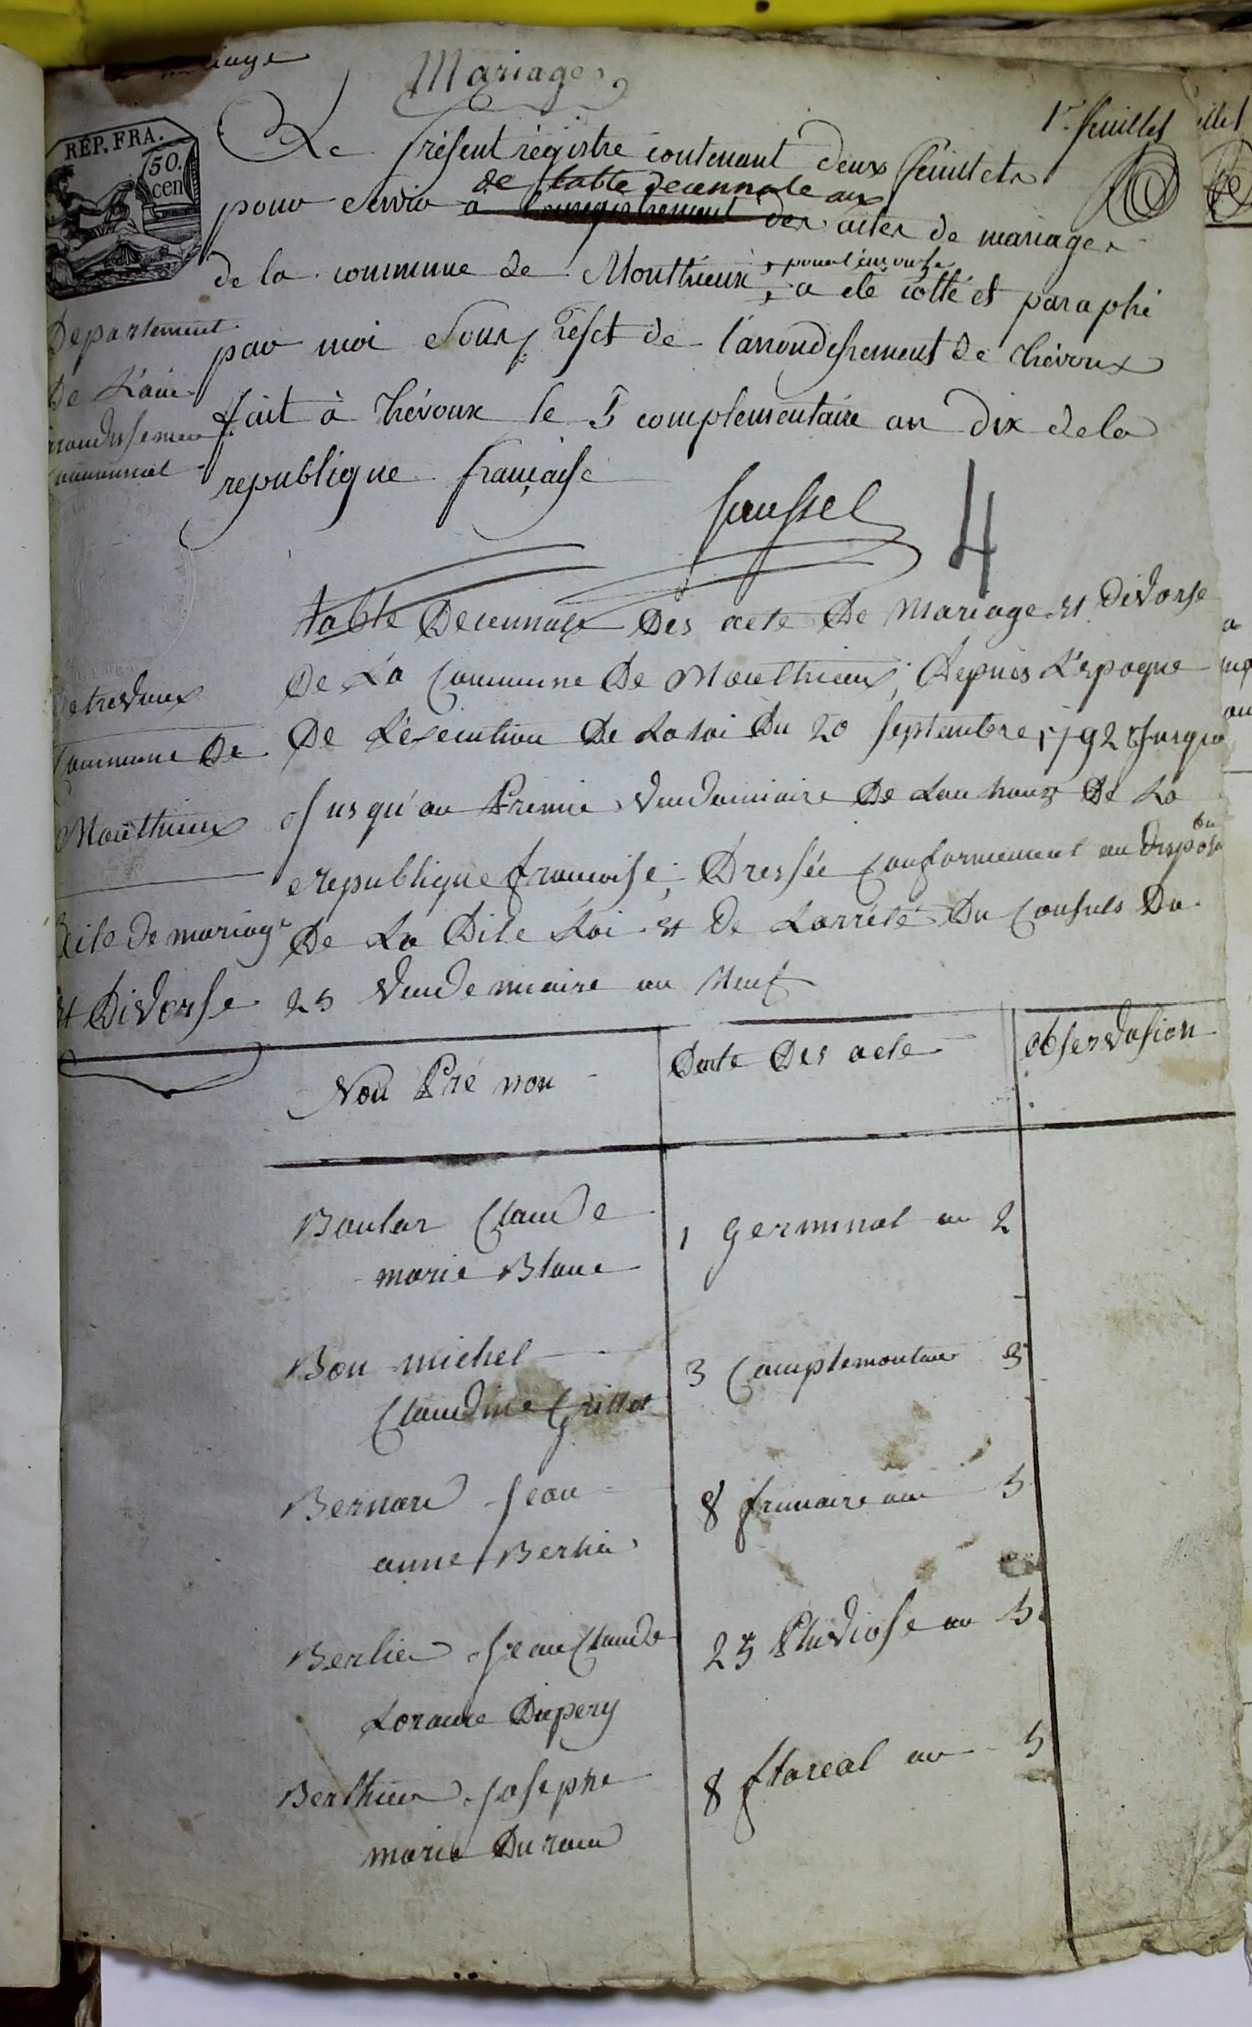 Mariages
1er feuillet
RÉP. FRA.
50.
cen
Le présent régistre contenant deux feuillets
de table decennale aux
pour servir a l'enregistrement des actes de mariages
de la commune de Monthieux, a été cotté et paraphé
par moi Sous préfet de l'arrondissement de trévoux
fait à trévoux le 5 complementaire an dix de la
republique française
4
Departement
De L'ain
arrondissement
communal
De trevoux
Commune De
Monthieux
acte de mariage
et Divorse
table Decennale Des acte De Mariage et Divorse
De La Commune De Monthieux, Depuis L'epoque
De L'execution De La loi Du 20 septembre 1792 Jusqua
Jusqu'au Premie vendemiaire De Lan honze De La
republique francoise; Dressée Conformement au Dispos
De La Dite Loi et De Larrété Du Consuls Du
25 vendemiaire an Neuf
Nou Pré non
Date Des acte
observasion
Boular Claude
1 germinal an 2
marie Blanc
Bon michel
3 Complemantaire 3
Claudine Grillet
Bernard Jean
8 frimaire an 5
anne Berlie
Berlie Jean Claude
25 Pluviose an 5
Loranse Dupery
Berthier Josephe
8 floreal an 5
marie Durand